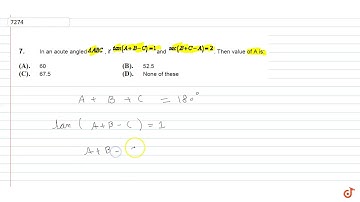 7274
7. In an acute angled ΔABC, if tan(A+B-C)=1 and sec(B+C-A)=2. Then value of A is:
(A). 60 (B). 52.5
(C). 67.5 (D). None of these
A + B + C = 180°
tan ( A+B - C ) = 1
A+B -